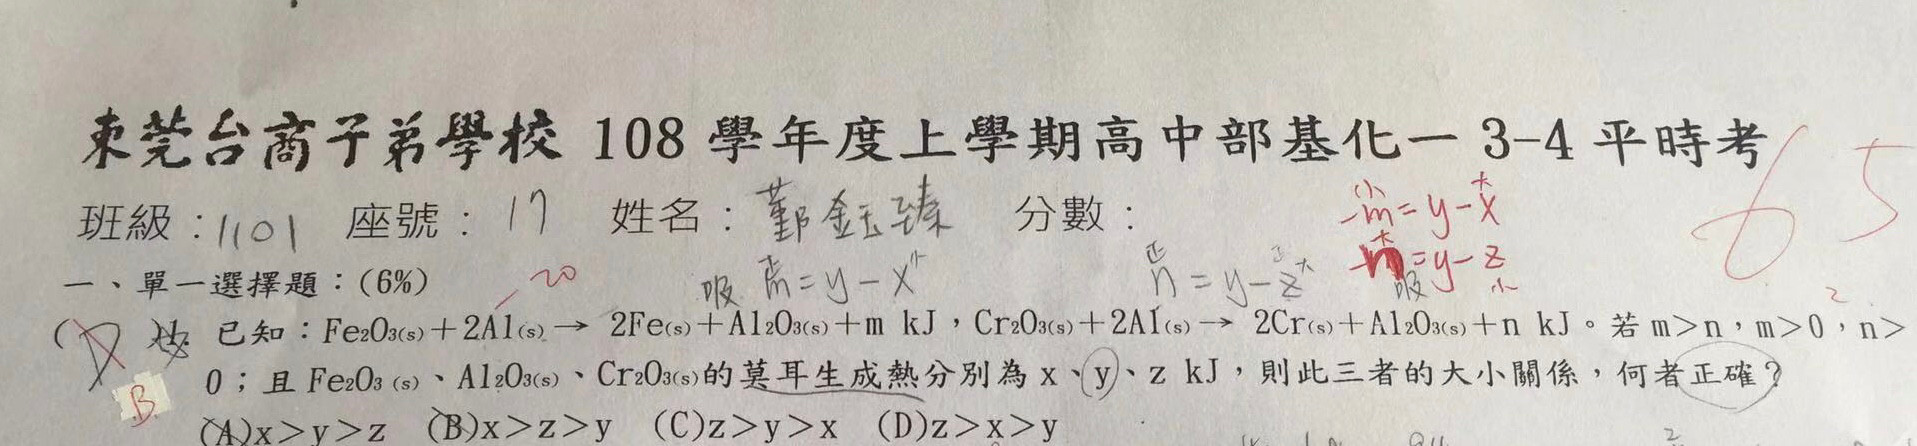 東莞台商子弟學校 108 學年度上學期高中部基化一 3-4 平時考
65
班級：1101 座號：17 姓名：鄞鈺臻 分數：
-m=y-x
-n=y-z
一、單一選擇題：(6%)
-20
吸 m=y-x
n=y-z
吸
(D) 已知：Fe₂O₃(s)+2Al(s)→ 2Fe(s)+Al₂O₃(s)+m kJ，Cr₂O₃(s)+2Al(s)→ 2Cr(s)+Al₂O₃(s)+n kJ。若 m>n，m>0，n>
B
0；且 Fe₂O₃(s)、Al₂O₃(s)、Cr₂O₃(s)的莫耳生成熱分別為 x、y、z kJ，則此三者的大小關係，何者正確？
(A)x>y>z (B)x>z>y (C)z>y>x (D)z>x>y